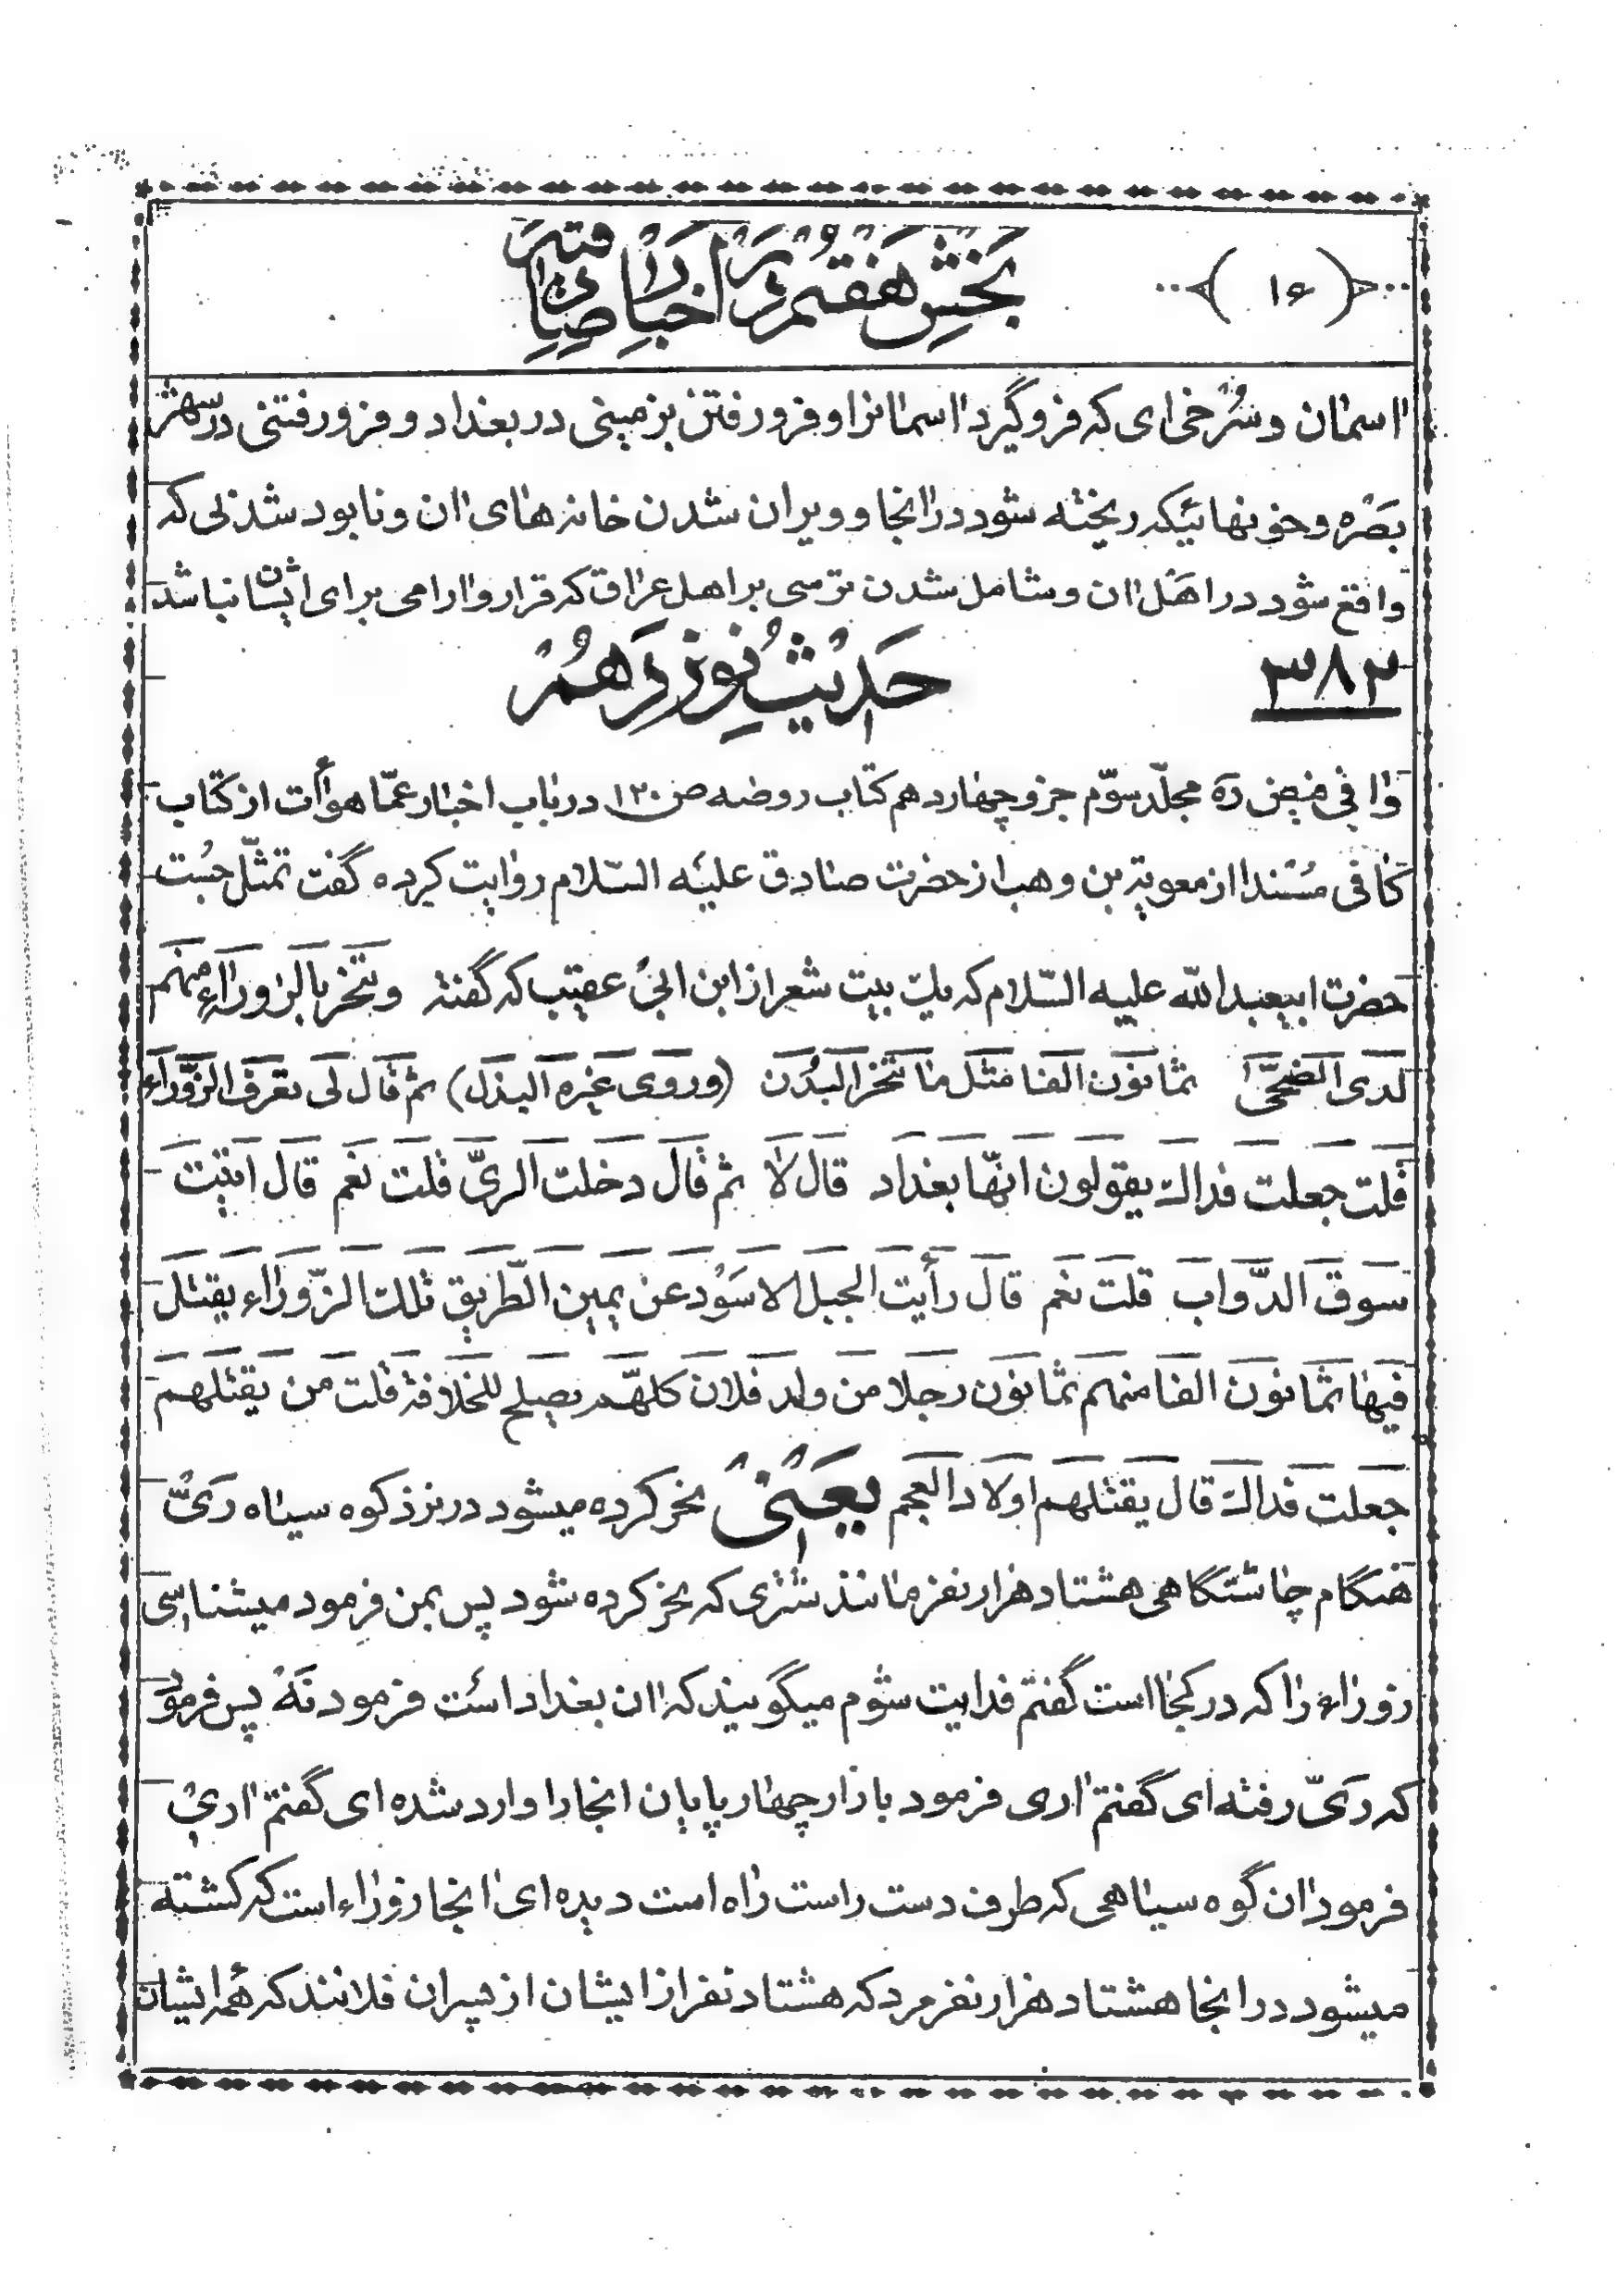 ۱۶
بخش هفتم در اخبار صادقیه
اسمان و سرخی ای که فرو گیرد اسمانرا و فرو رفتن بزمینی در بغداد و فرو رفتنی در شهر
بصره و خونهائیکه ریخته شود در انجا و ویران شدن خانه های ان و نابود شدنی که
واقع شود در اهل ان و شامل شدن ترسی بر اهل عراق که قرار و ارامی برای ایشان نباشد
۳۸۳ حدیث نوزدهم
وافی فیض ره مجلّد سوّم جزو چهاردهم کتاب روضه ص ۱۲۰ در باب اخبار عمّا هو أت از کتاب
کافی مسندا از معویة بن وهب از حضرت صادق علیه السّلام روایت کرده گفت تمثّل جست
حضرت ابیعبدالله علیه السّلام که یک بیت شعر از ابن ابی عقیب که گفته وینحر بالزوراء منهم
لدی الضحّی ثمانون الفا مثل ما تنحر البدن (وروی غیره البذل) ثم قال لی تعرف الزّوراء
قلت جعلت فداک یقولون انها بغداد قال لا ثم قال دخلت الریّ قلت نعم قال اتیت
سوق الدّواب قلت نعم قال رأیت الجبل الاسود عن یمین الطّریق تلک الزّوراء یقتل
فیها ثمانون الفا منهم ثمانون رجلا من ولد فلان کلهّم یصلح للخلافة قلت من یقتلهم
جعلت فداک قال یقتلهم اولاد العجم یعنی نحر کرده میشود در نزد کوه سیاه ریّ
هنگام چاشتگاهی هشتاد هزار نفر مانند شتری که نحر کرده شود پس بمن فرمود میشناسی
زوراء را که در کجا است گفتم فدایت شوم میگویند که ان بغداد است فرمود نه پس فرمود
که ریّ رفته ای گفتم اری فرمود بازار چهارپایان انجا را وارد شده ای گفتم اری
فرمود ان کوه سیاهی که طرف دست راست راه است دیده ای انجا زوراء است که کشته
میشود در انجا هشتاد هزار نفر مرد که هشتاد نفر از ایشان از پسران فلانند که همه ایشان